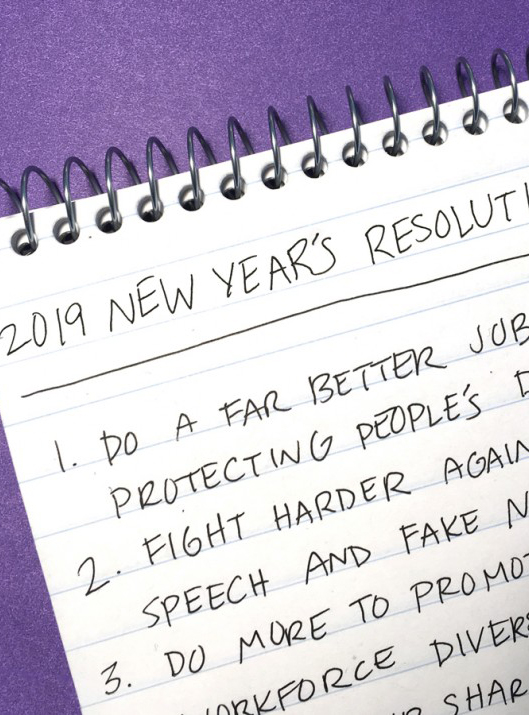 2019 NEW YEAR'S RESOLUTI
1. DO A FAR BETTER JOB
PROTECTING PEOPLE'S D
2. FIGHT HARDER AGAIN
SPEECH AND FAKE N
3. DO MORE TO PROMOT
WORKFORCE DIVERS
SHAR